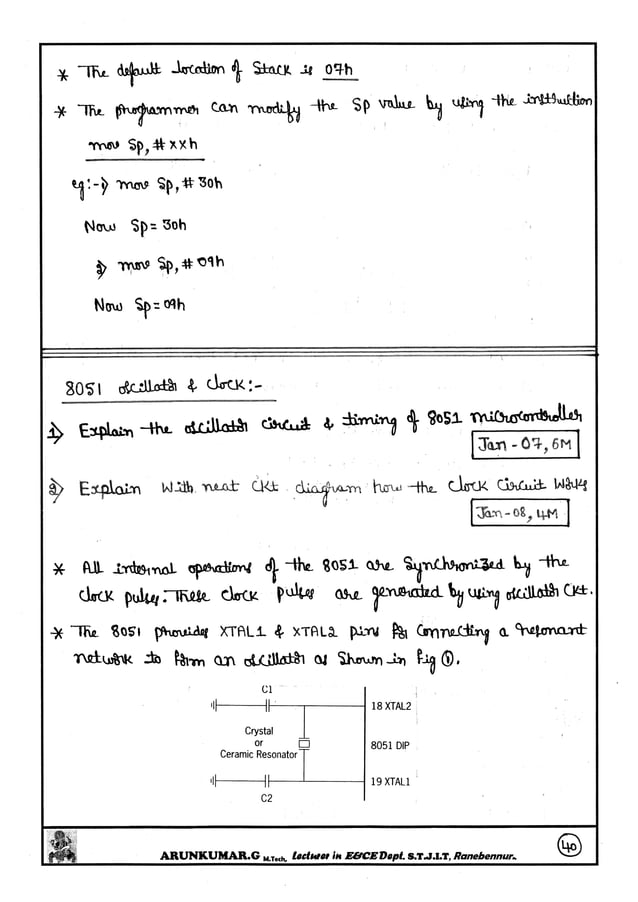 * The default location of Stack is 07h
* The programmer can modify the SP value by using the instruction
mov SP, # xxh
eg:-1) mov SP, # 30h
Now SP = 30h
2) mov SP, # 09h
Now SP = 09h
8051 oscillator & clock:-
1) Explain the oscillator circuit & timing of 8051 microcontroller
Jan - 07, 6M
2) Explain with neat ckt diagram how the clock circuit works
Jan - 08, 4M
* All internal operations of the 8051 are synchronized by the
clock pulses. These clock pulses are generated by using oscillator ckt.
* The 8051 provides XTAL1 & XTAL2 pins for connecting a resonant
network to form an oscillator as shown in fig ①.
C1
18 XTAL2
Crystal
or
Ceramic Resonator
8051 DIP
19 XTAL1
C2
ARUNKUMAR.G M.Tech, Lecturer in E&CE Dept. S.T.J.I.T, Ranebennur.
40